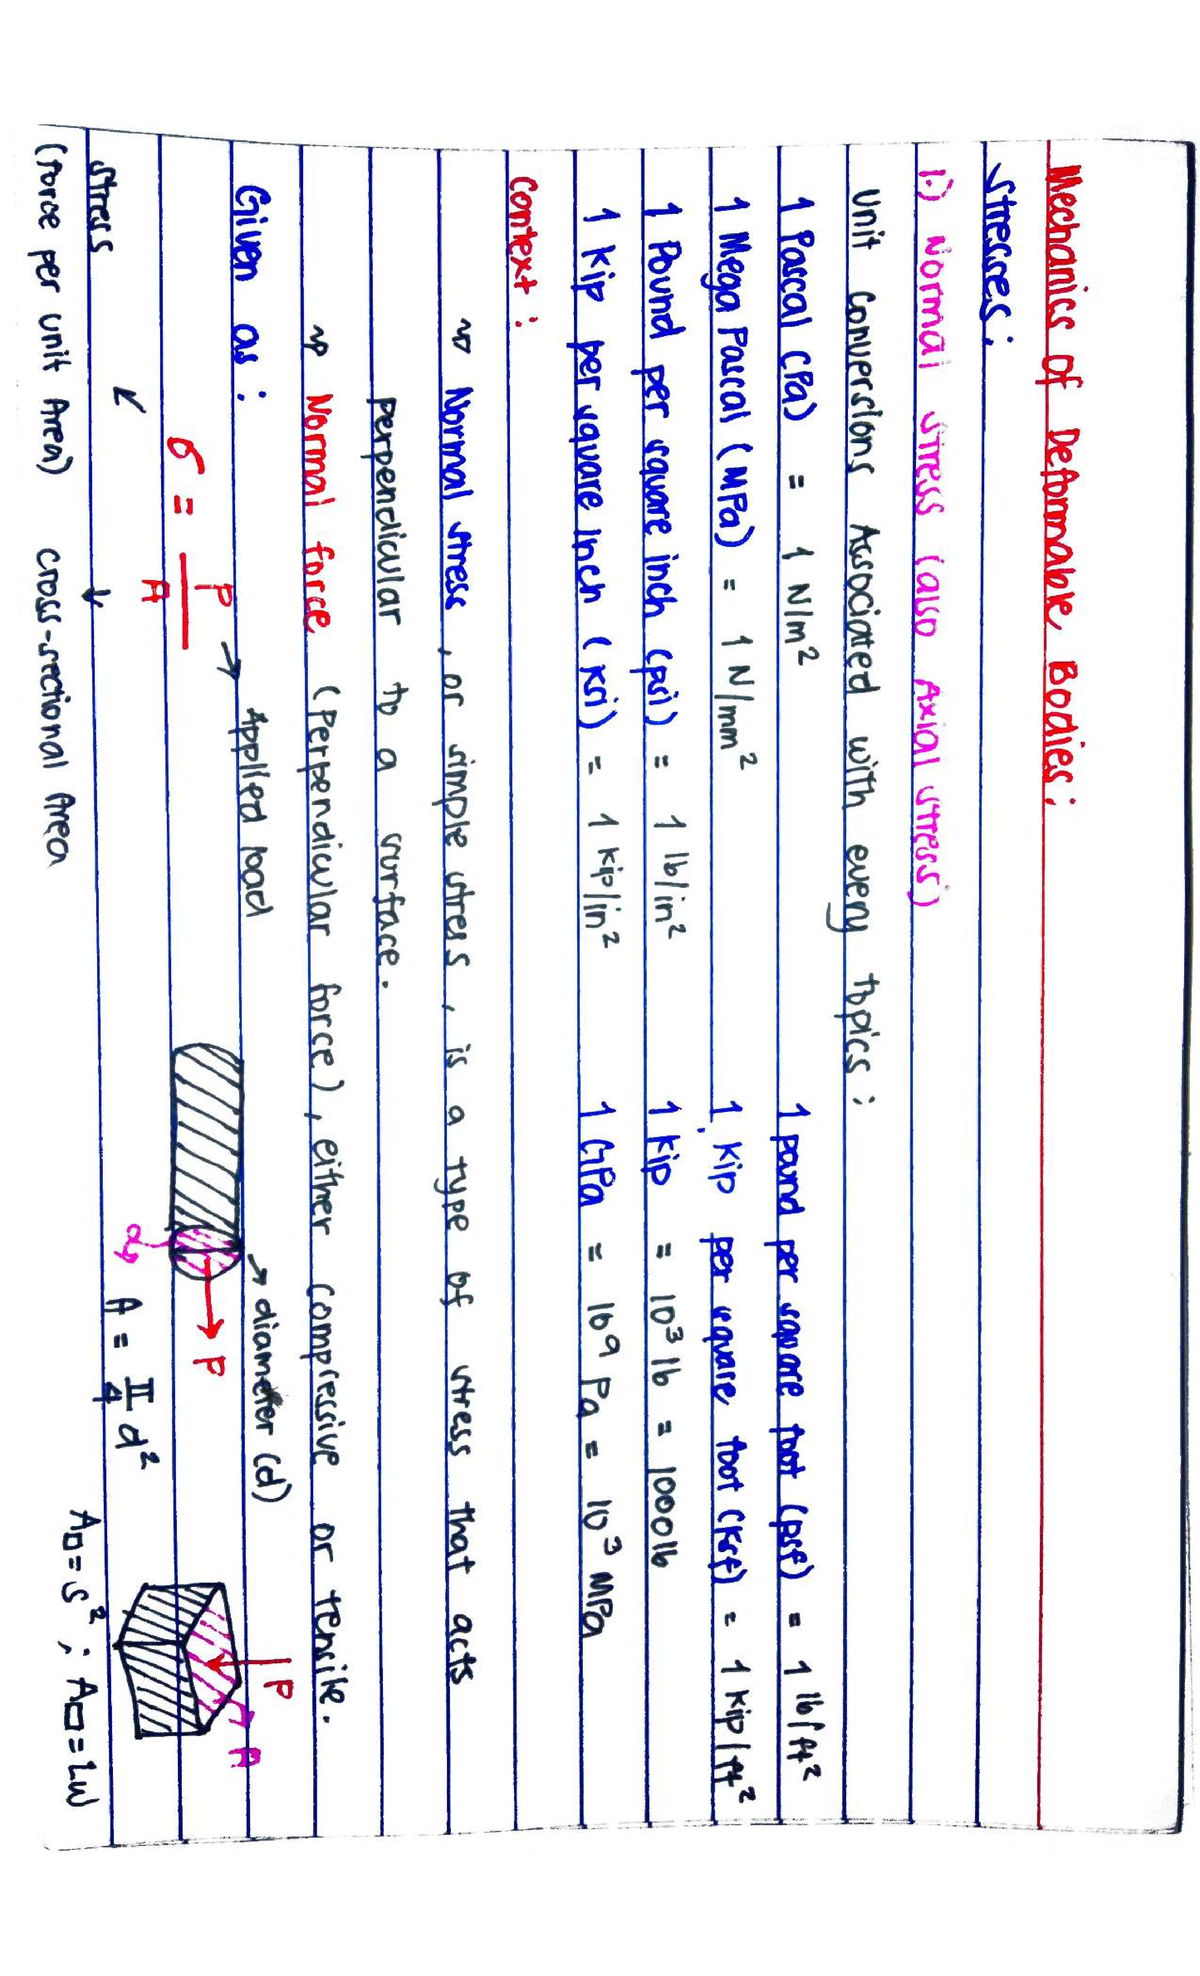 Mechanics of Deformable Bodies:
Stresses:
1.) Normal stress (also Axial stress)
Unit Conversions Associated with every topics:
1 Pascal (Pa) = 1 N/m²
1 pound per square foot (psf) = 1 lb/ft²
1 Mega Pascal (MPa) = 1 N/mm²
1 kip per square foot (ksf) = 1 kip/ft²
1 Pound per square inch (psi) = 1 lb/in²
1 kip = 10³ lb = 1000 lb
1 kip per square inch (ksi) = 1 kip/in²
1 GPa = 10⁹ Pa = 10³ MPa
Context:
↝ Normal stress, or simple stress, is a type of stress that acts
perpendicular to a surface.
↝ Normal force (perpendicular force), either compressive or tensile.
Given as:
σ = P/A
→ Applied load
stress
(force per unit Area)
cross-sectional Area
→ diameter (d)
P
A = π/4 d²
P
A
A□ = s² ; A▭ = LW